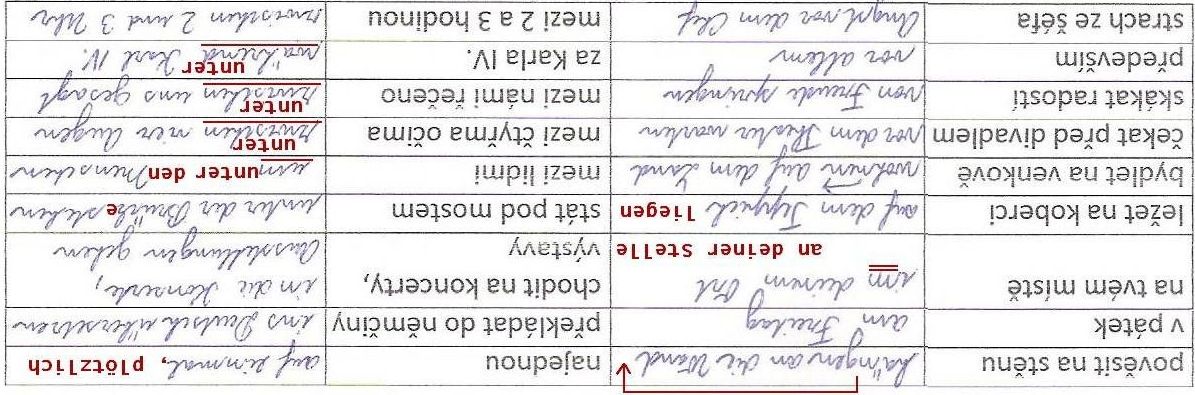 pověsit na stěnu hängen an die Wand najednou auf einmal, plötzlich
v pátek am Freitag překládat do němčiny ins Deutsch übersetzen
na tvém místě im deinem Ort chodit na koncerty, in die Konzerte,
an deiner Stelle výstavy Ausstellungen gehen
ležet na koberci auf dem Teppich liegen stát pod mostem unter der Brücke stehen
e
bydlet na venkově wohnen auf dem Land mezi lidmi um unter den Menschen
čekat před divadlem vor dem Theater warten mezi čtyřma očima zwischen vier Augen
unter
skákat radostí von Freude springen mezi námi řečeno zwischen uns gesagt
unter
především vor allem za Karla IV. während Karl IV.
unter
strach ze šéfa Angst vor dem Chef mezi 2 a 3 hodinou zwischen 2 und 3 Uhr